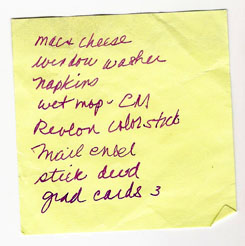 mac & cheese
window washer
napkins
wet mop - CM
Revlon colorstick
Mail
stick deod
grad cards 3